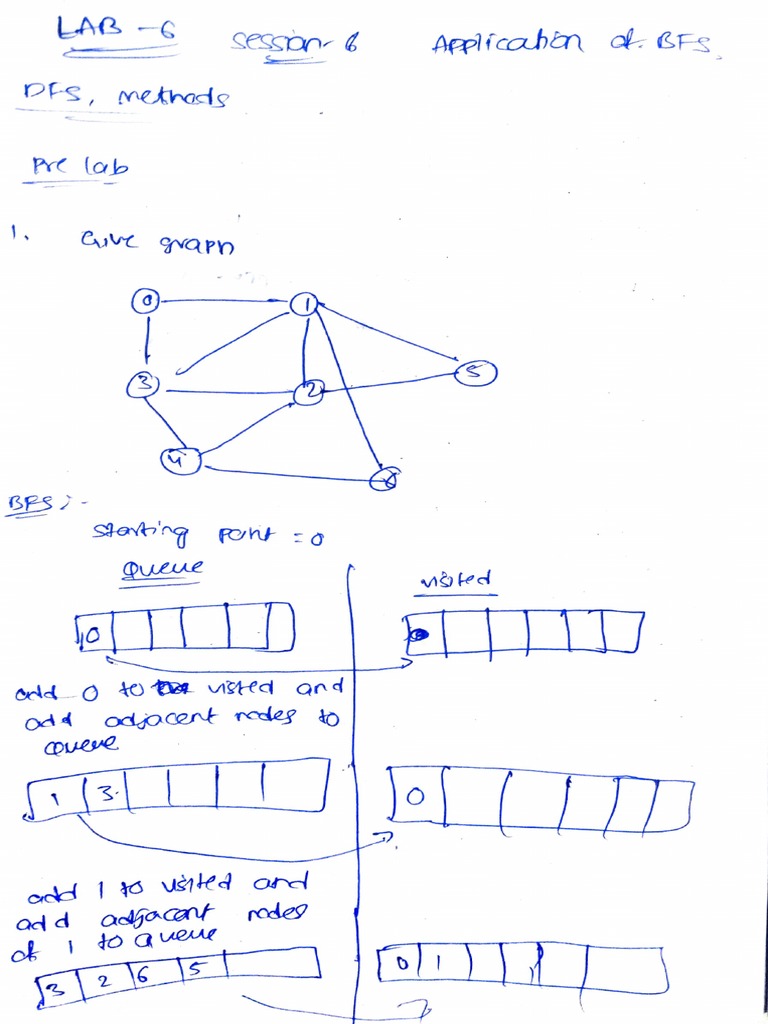 LAB - 6 Session- 6 Application of BFS,
DFS, methods
Pre lab
1. Give graph
0 1
3 2 5
4 6
BFS :-
starting point = 0
Queue visited
0
add 0 to visted and
add adjacent nodes to
Queue
1 3 0
add 1 to visited and
add adjacent nodes
of 1 to Queue
3 2 6 5 0 1